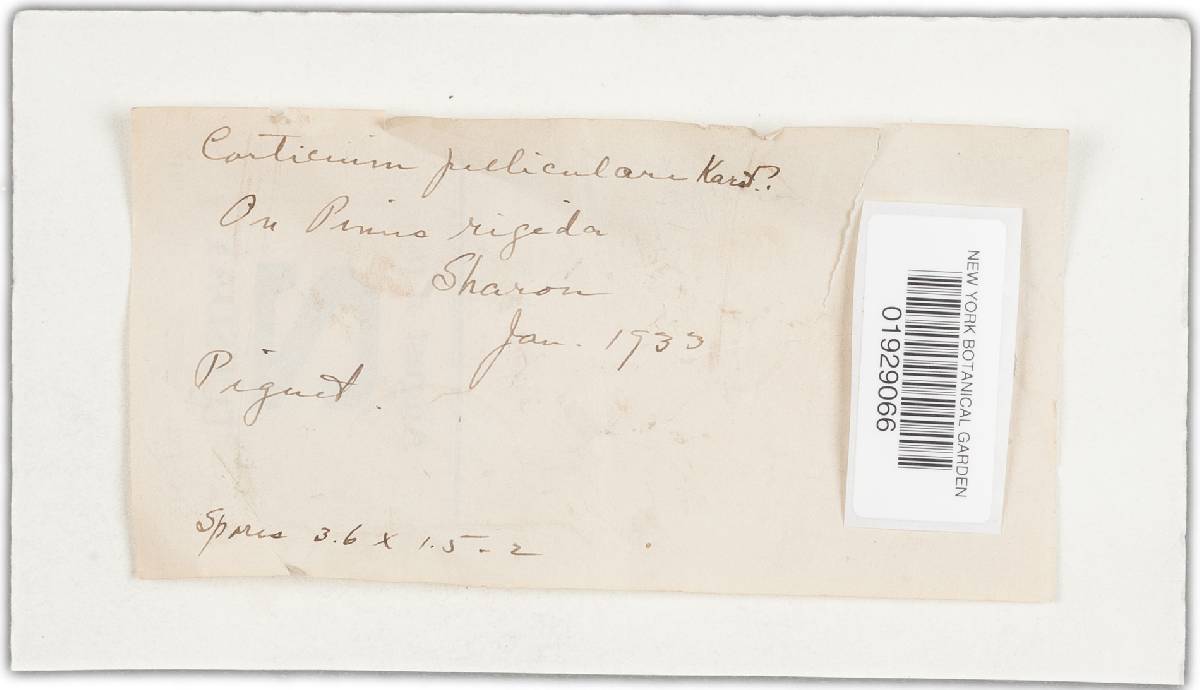 Corticium pelliculare Karst.
On Pinus rigida
Sharon
Jan. 1933
Piguet.
Spores 3.6 x 1.5-2
NEW YORK BOTANICAL GARDEN
01929066